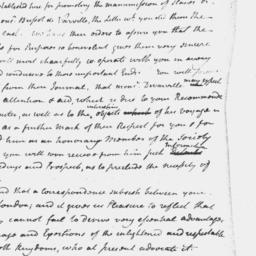 established here for promoting the manumission of Slaves or
monr Brissot de Warville, the Letter wh. you did them the
each. We have their orders to assure you that the
for Purposes so benevolent gives them very sincere
will most chearfully co operate with you in every
and conducive to those important Ends. You will
from their Journal, that monr. Dwarville may expect
attention & aid, which is due to your Recommend
nter, as well as to the interesting objects of his Voyage
as a further mark of their Respect for you & for
him as an honorary Member of the Society
you will now receive from him such Informat
edings and Prospects, as to preclude the necessity of
and that a correspondence subsists between you
London; and it gives us Pleasure to reflect that
cannot fail to derive very essential advantages,
and Exertions of the enlightened and respectable
both Kingdoms, who at present advocate it.